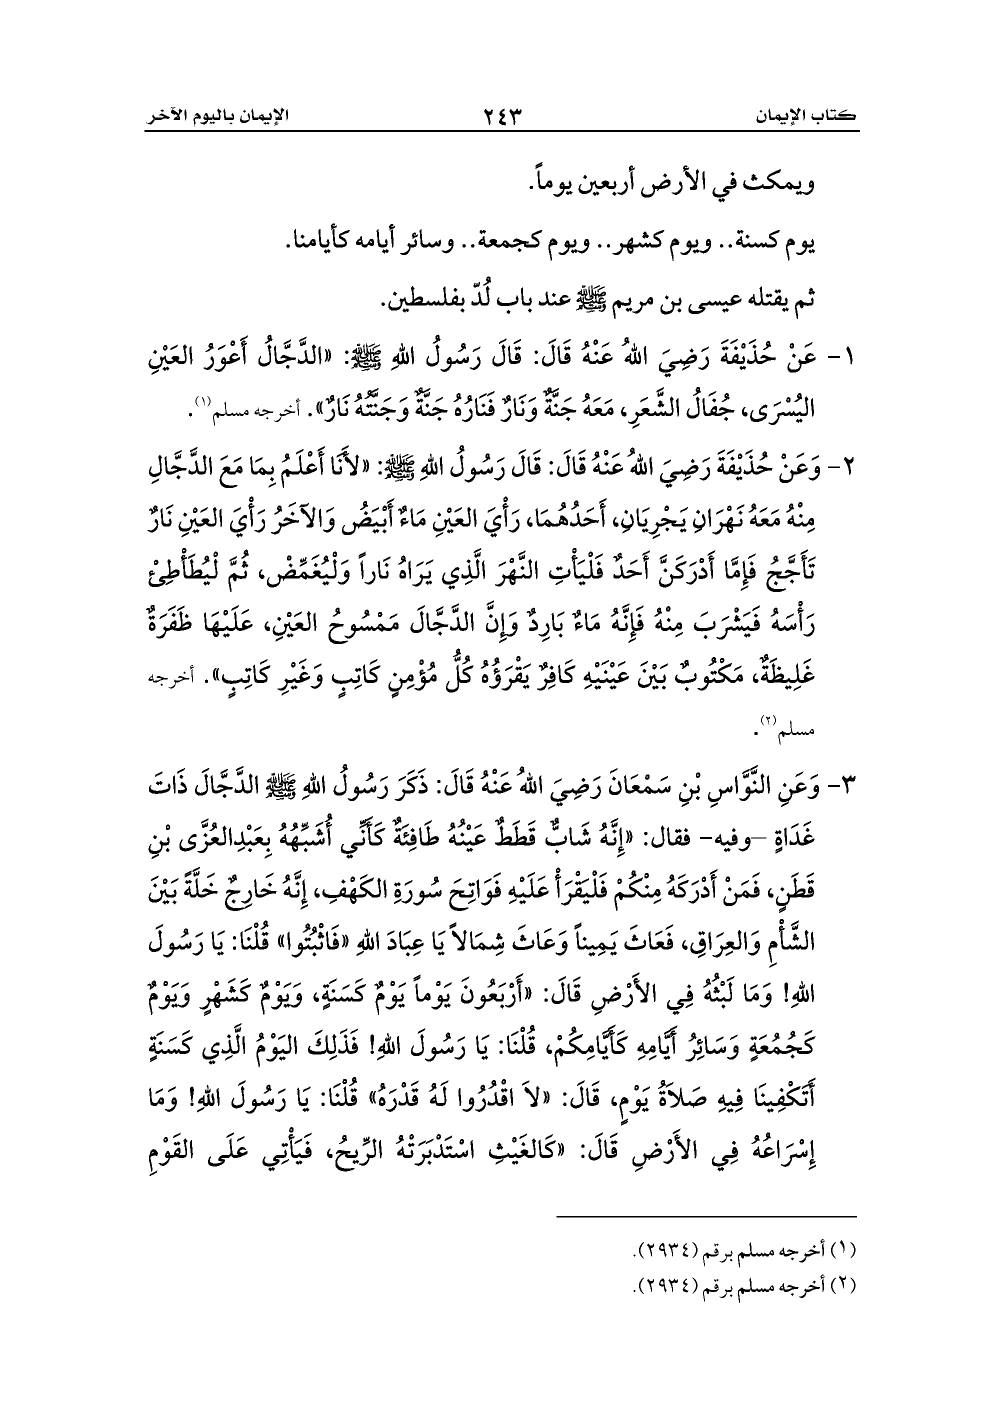 كتاب الإيمان ٢٤٣ الإيمان باليوم الآخر
ويمكث في الأرض أربعين يوماً.
يوم كسنة.. ويوم كشهر.. ويوم كجمعة.. وسائر أيامه كأيامنا.
ثم يقتله عيسى بن مريم ﷺ عند باب لُدّ بفلسطين.
١- عَنْ حُذَيْفَةَ رَضِيَ اللهُ عَنْهُ قَالَ: قَالَ رَسُولُ اللهِ ﷺ: «الدَّجَّالُ أَعْوَرُ العَيْنِ
اليُسْرَى، جُفَالُ الشَّعَرِ، مَعَهُ جَنَّةٌ وَنَارٌ فَنَارُهُ جَنَّةٌ وَجَنَّتُهُ نَارٌ». أخرجه مسلم(١).
٢- وَعَنْ حُذَيْفَةَ رَضِيَ اللهُ عَنْهُ قَالَ: قَالَ رَسُولُ اللهِ ﷺ: «لأَنَا أَعْلَمُ بِمَا مَعَ الدَّجَّالِ
مِنْهُ مَعَهُ نَهْرَانِ يَجْرِيَانِ، أَحَدُهُمَا، رَأْيَ العَيْنِ مَاءٌ أَبْيَضُ وَالآخَرُ رَأْيَ العَيْنِ نَارٌ
تَأَجَّجُ فَإِمَّا أَدْرَكَنَّ أَحَدٌ فَلْيَأْتِ النَّهْرَ الَّذِي يَرَاهُ نَاراً وَلْيُغَمِّضْ، ثُمَّ لْيُطَأْطِئْ
رَأْسَهُ فَيَشْرَبَ مِنْهُ فَإِنَّهُ مَاءٌ بَارِدٌ وَإِنَّ الدَّجَّالَ مَمْسُوحُ العَيْنِ، عَلَيْهَا ظَفَرَةٌ
غَلِيظَةٌ، مَكْتُوبٌ بَيْنَ عَيْنَيْهِ كَافِرٌ يَقْرَؤُهُ كُلُّ مُؤْمِنٍ كَاتِبٍ وَغَيْرِ كَاتِبٍ». أخرجه
مسلم(٢).
٣- وَعَنِ النَّوَّاسِ بْنِ سَمْعَانَ رَضِيَ اللهُ عَنْهُ قَالَ: ذَكَرَ رَسُولُ اللهِ ﷺ الدَّجَّالَ ذَاتَ
غَدَاةٍ –وفيه- فقال: «إِنَّهُ شَابٌّ قَطَطٌ عَيْنُهُ طَافِئَةٌ كَأَنِّي أُشَبِّهُهُ بِعَبْدِالعُزَّى بْنِ
قَطَنٍ، فَمَنْ أَدْرَكَهُ مِنْكُمْ فَلْيَقْرَأْ عَلَيْهِ فَوَاتِحَ سُورَةِ الكَهْفِ، إِنَّهُ خَارِجٌ خَلَّةً بَيْنَ
الشَّأْمِ وَالعِرَاقِ، فَعَاثَ يَمِيناً وَعَاثَ شِمَالاً يَا عِبَادَ اللهِ «فَاثْبُتُوا» قُلْنَا: يَا رَسُولَ
اللهِ! وَمَا لَبْثُهُ فِي الأَرْضِ قَالَ: «أَرْبَعُونَ يَوْماً يَوْمٌ كَسَنَةٍ، وَيَوْمٌ كَشَهْرٍ وَيَوْمٌ
كَجُمُعَةٍ وَسَائِرُ أَيَّامِهِ كَأَيَّامِكُمْ، قُلْنَا: يَا رَسُولَ اللهِ! فَذَلِكَ اليَوْمُ الَّذِي كَسَنَةٍ
أَتَكْفِينَا فِيهِ صَلاَةُ يَوْمٍ، قَالَ: «لاَ اقْدُرُوا لَهُ قَدْرَهُ» قُلْنَا: يَا رَسُولَ اللهِ! وَمَا
إِسْرَاعُهُ فِي الأَرْضِ قَالَ: «كَالغَيْثِ اسْتَدْبَرَتْهُ الرِّيحُ، فَيَأْتِي عَلَى القَوْمِ
(١) أخرجه مسلم برقم (٢٩٣٤).
(٢) أخرجه مسلم برقم (٢٩٣٤).